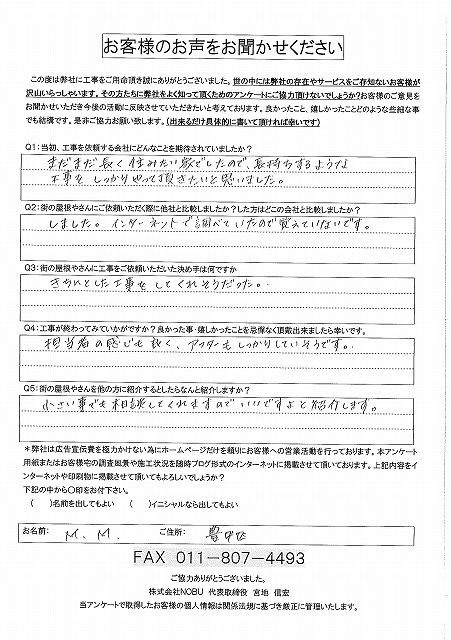 お客様のお声をお聞かせください
この度は弊社に工事をご用命頂き誠にありがとうございました。世の中には弊社の存在やサービスをご存知ないお客様が
沢山いらっしゃいます。その方たちに弊社をよく知って頂くためのアンケートにご協力頂けないでしょうか?お客様のご意見を
お聞かせいただき今後の活動に反映させていただきたいと考えております。良かったこと、嬉しかったことどのような些細な事
でも結構です。是非ご協力お願い致します。(出来るだけ具体的に書いて頂ければ幸いです)
Q1:当初、工事を依頼する会社にどんなことを期待されていましたか?
まだまだ長く住みたい家でしたので、長持ちするような
工事をしっかりやって頂きたいと思いました。
Q2:街の屋根やさんにご依頼いただく際に他社と比較しましたか?した方はどこの会社と比較しましたか?
しました。インターネットで調べていたので覚えていないです。
Q3:街の屋根やさんに工事をご依頼いただいた決め手は何ですか
きちんとした工事をしてくれそうだった。
Q4:工事が終わってみていかがですか?良かった事・嬉しかったことを忌憚なく頂戴出来ましたら幸いです。
担当者の感じも良く、アフターもしっかりしていそうです。
Q5:街の屋根やさんを他の方に紹介するとしたらなんと紹介しますか?
小さい事でも相談してくれますのでいいですよと紹介します。
*弊社は広告宣伝費を極力かけない為にホームページだけを頼りにお客様への営業活動を行っております。本アンケート
用紙またはお客様宅の調査風景や施工状況を随時ブログ形式のインターネットに掲載させて頂いております。上記内容をイ
ンターネットや印刷物に掲載させて頂いてもよろしいでしょうか?
下記の中から〇印をお付下さい。
( )名前を出してもよい ( )イニシャルなら出してもよい
お名前: M.M. ご住所:
FAX 011-807-4493
ご協力ありがとうございました。
株式会社NOBU 代表取締役 宮地 信宏
当アンケートで取得したお客様の個人情報は関係法規に基づき厳正に管理いたします。